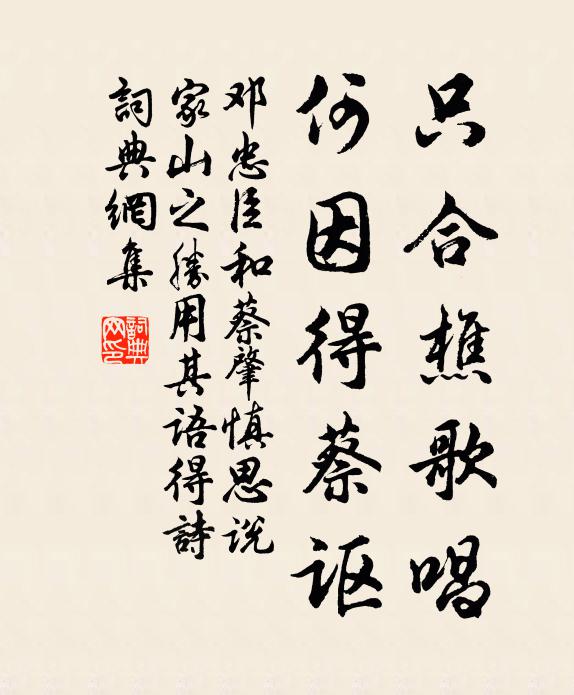 只合樵歌唱
何因得蔡讴
邓忠臣和蔡肇慎思说
家山之勝用其语得詩
詞典網集
詞典网印